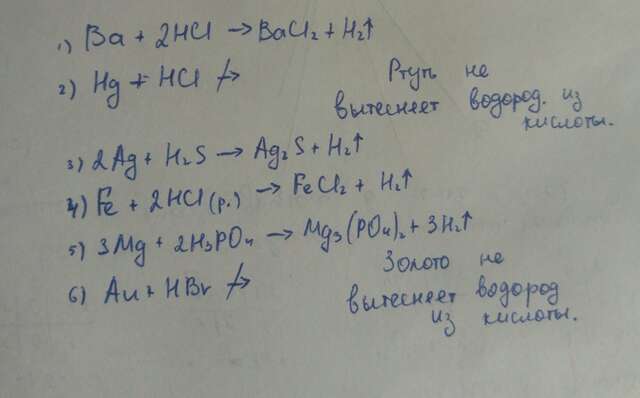 1) Ba + 2HCl → BaCl₂ + H₂↑
2) Hg + HCl ↛
Ртуть не
вытесняет водород. из
кислоты.
3) 2Ag + H₂S → Ag₂S + H₂↑
4) Fe + 2HCl (р.) → FeCl₂ + H₂↑
5) 3Mg + 2H₃PO₄ → Mg₃(PO₄)₂ + 3H₂↑
6) Au + HBr ↛
Золото не
вытесняет водород
из кислоты.